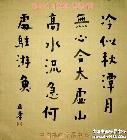 冷似秋潭月
無心合太虛山
高水流急何
處駐游魚